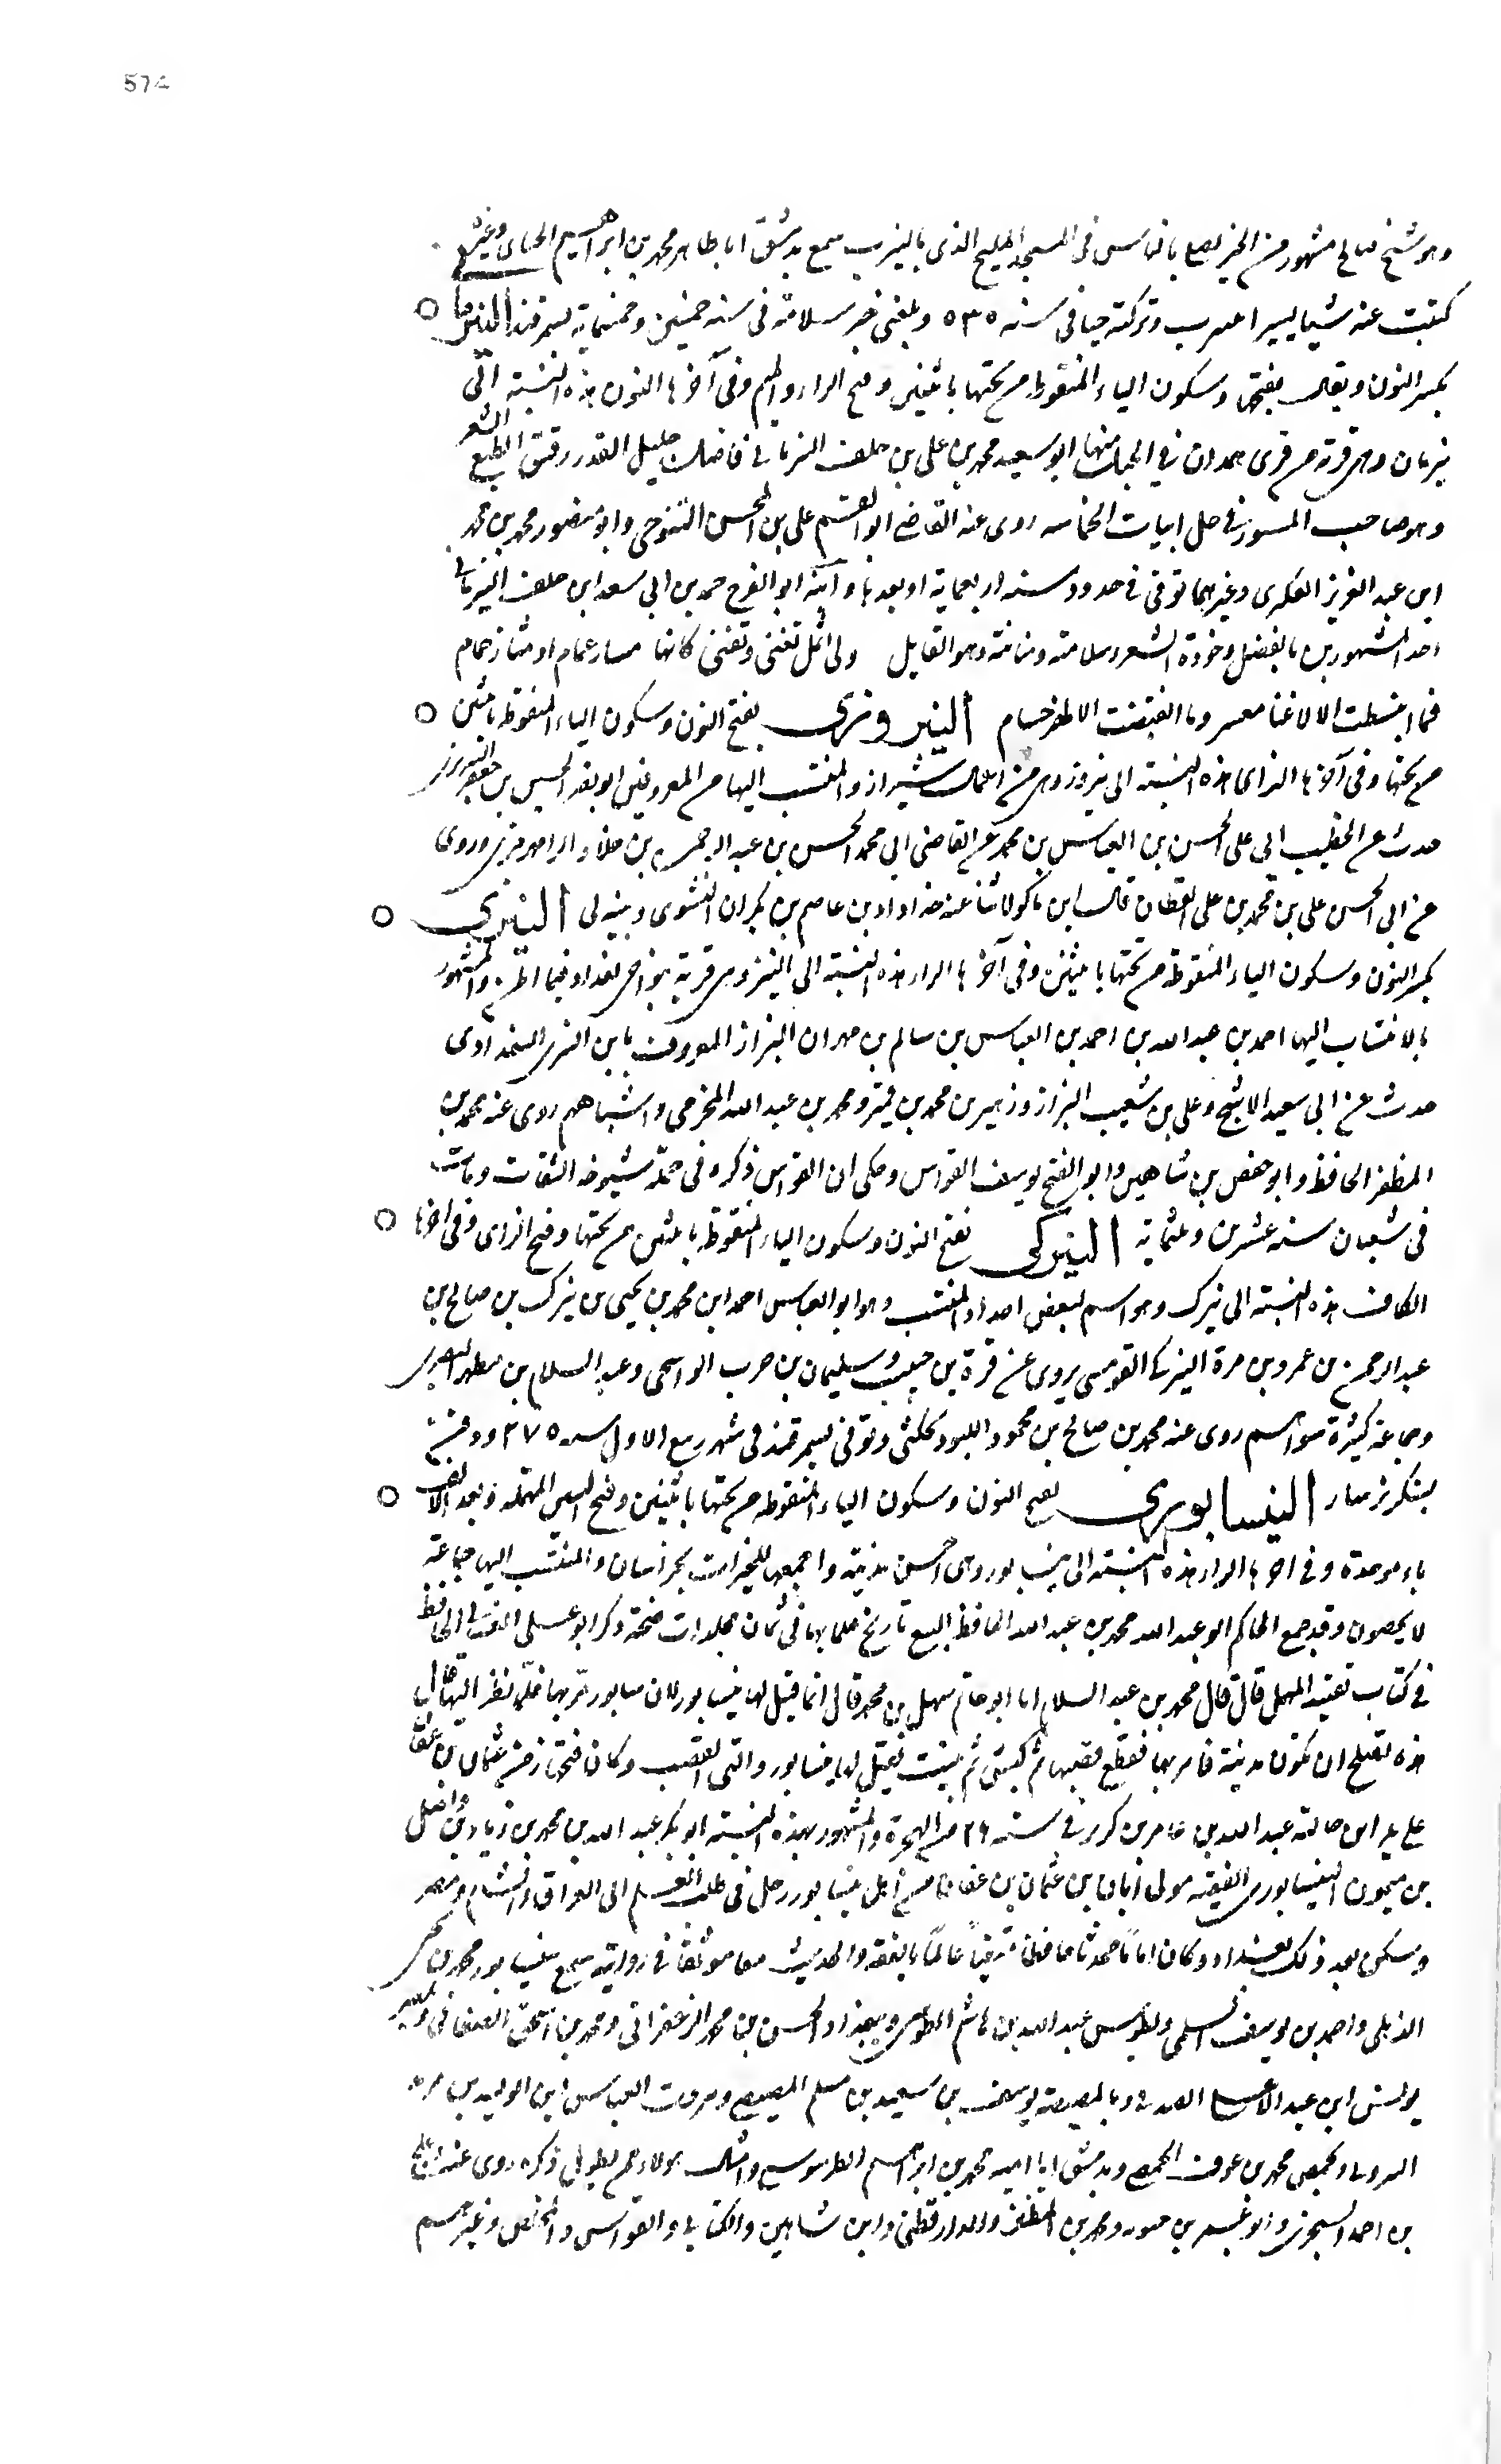 574
وهو شيخ صالح مشهور من الخير يصلي بالناس في المسجد المليح الذي بالنيرب سمع بدمشق ابا طاهر محمد بن ابراهيم الحنائي وغيره
كتبت عنه شيا يسيرا بنيرب وتركته حيا في سنه ٥٣٥ وبلغني خبر سلامته في سنه خمسين وخمسماية بسمرقند النيرماني
بكسر النون ويقال بفتحها وسكون الياء المنقوطه من تحتها باثنين وفتح الراء والميم وفي آخرها النون هذه النسبته الى
نيرمان وهى قرية من قرى همدان في الجبال منها ابو سعيد محمد بن على بن خلف النيرماني فاضل جليل القدر رقيق الطبع الشعر
وهو صاحب المنثور في حل ابيات الحماسه روى عنه القاضي ابو القسم على بن المحسن التنوخي وابو منصور محمد بن محمد
ابن عبد العزيز العكبرى وغيرهما توفى في حدود سنه اربعماية او بعدها وابنه ابو الفرج حمد بن ابي سعد ابن خلف النيرماني
احد المشهورين بالفضل وجودة الشعر وسلامته ومتانته وهو القايل ولى انمل تغنى وتفنى كانها مسار غمام او مثار حمام
فما انبسطت الا لاغنا معسر وما انقبضت الا لظفر حسام النيروزى بفتح النون وسكون الياء المنقوطه باثنين
من تحتها وفى آخرها الزاى هذه النسبته الى نيروز وهى من اعمال شيراز والمنتسب اليها من المعروفين ابو نصر الحسين بن جعفر النيريزى
حدث عن الخطيب ابي على الحسن بن العباس بن محمد عن القاضى ابي محمد الحسن بن عبد الرحمن بن خلاد الرامهرمزى وروى
عن ابي الحسن على بن محمد بن على القطان قال ابن ماكولا ثنا عنه خداداد بن عاصم بن بكران النشوى وبينه لى النيرى
بكسر النون وسكون الياء المنقوطه من تحتها باثنين وفى آخرها الراء هذه النسبته الى النير وهى قرية بنواحى بغداد فيما اظن والمشهور
بالانتساب اليها احمد بن عبدالله بن احمد بن العباس بن سالم بن مهران البزاز المعروف بابن النيرى البغدادى
حدث عن ابي سعيد الاشج وعلى بن شعيب البزاز وزهير بن محمد بن قمير ومحمد بن عبد الله المخرمى واشباههم روى عنه محمد بن
المظفر الحافظ وابو حفص بن شاهين وابو الفتح يوسف القواس وحكى ان القواس ذكره فى جملة شيوخه الثقات ومات
فى شعبان سنه عشرين وثلثماية النيزكى بفتح النون وسكون الياء المنقوطه باثنين من تحتها وفتح الزاى وفى اخرها
الكاف هذه النسبته الى نيزك وهو اسم لبعض اجداد المنتسب وهو ابو العباس احمد ابن محمد بن يحيى بن نيزك بن صالح بن
عبد الرحمن بن عمرو بن مرة النيزكى القومسى يروى عن قرة بن حبيب وسليمان بن حرب الواشحى وعبد السلام بن مطهر البصرى
وجماعة كثيرة سواهم روى عنه محمد بن صالح بن محمود وتوفى بسمرقند فى شهر ربيع الاول سنه ٢٧٥ ودفن
النيسابورى بفتح النون وسكون الياء المنقوطه من تحتها باثنين وفتح السين المهمله وبعد الالف
باء موحدة وفى اخرها الراء هذه النسبته الى نيسابور وهى احسن مدينة واجمعها للخيرات بخراسان والمنتسب اليها جماعة
لا يحصون وقد جمع الحاكم ابو عبد الله محمد بن عبد الله الحافظ البيع تاريخ علمايها فى ثمان مجلدات ضخمة ذكر ابو على الغسانى الحافظ
فى كتاب تقييد المهمل قال قال محمد بن عبد السلام انا ابو حاتم سهل بن محمد قال انما قيل لها نيسابور لان سابور مر بها فلما نظر اليها قال
هذه تصلح ان تكون مدينة فامر بها فقطع قصبها ثم كبس ثم بنيت فقيل لها نيسابور والنى القصب وكان فتحها زمن عثمان بن عفان
على يد ابن خالته عبد الله بن عامر بن كريز فى سنه ٢٩ من الهجرة والمشهور بهذه النسبته ابو بكر عبد الله بن محمد بن زياد بن واصل
بن ميمون النيسابورى الفقيه مولى ابان بن عثمان بن عفان من اهل نيسابور رحل فى طلب العلم الى العراق والشام ومصر
وسكن بعد ذلك بغداد وكان اماما محدثا حافظا متقنا عالما بالفقه والحديث معا موثقا فى روايته سمع بنيسابور محمد بن يحيى
الذهلى واحمد بن يوسف السلمى وبطوس عبد الله بن هاشم الطوسى وببغداد الحسن بن محمد الزعفرانى ومحمد بن اسحق الصغانى وبمصر
يونس ابن عبد الاعلى الصدفى وبالمصيصة يوسف بن سعيد بن مسلم المصيصى وببيروت العباس ابن الوليد بن مزيد
البيروتى وبحمص محمد بن عوف الحمصى وبدمشق ابا اميه محمد بن ابراهيم الطرسوسى وامثال هولاء ممن يطول ذكره روى عنه دعلج
بن احمد السجزى وابو عمر بن حيويه ومحمد بن المظفر والدارقطنى وابن شاهين والكتانى والقواس والمخلص وغيرهم